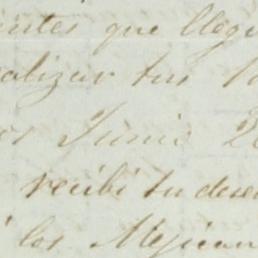 ientes que lleg
ealizar tus
os Junio 2
recibi tu dese
i los Mejican